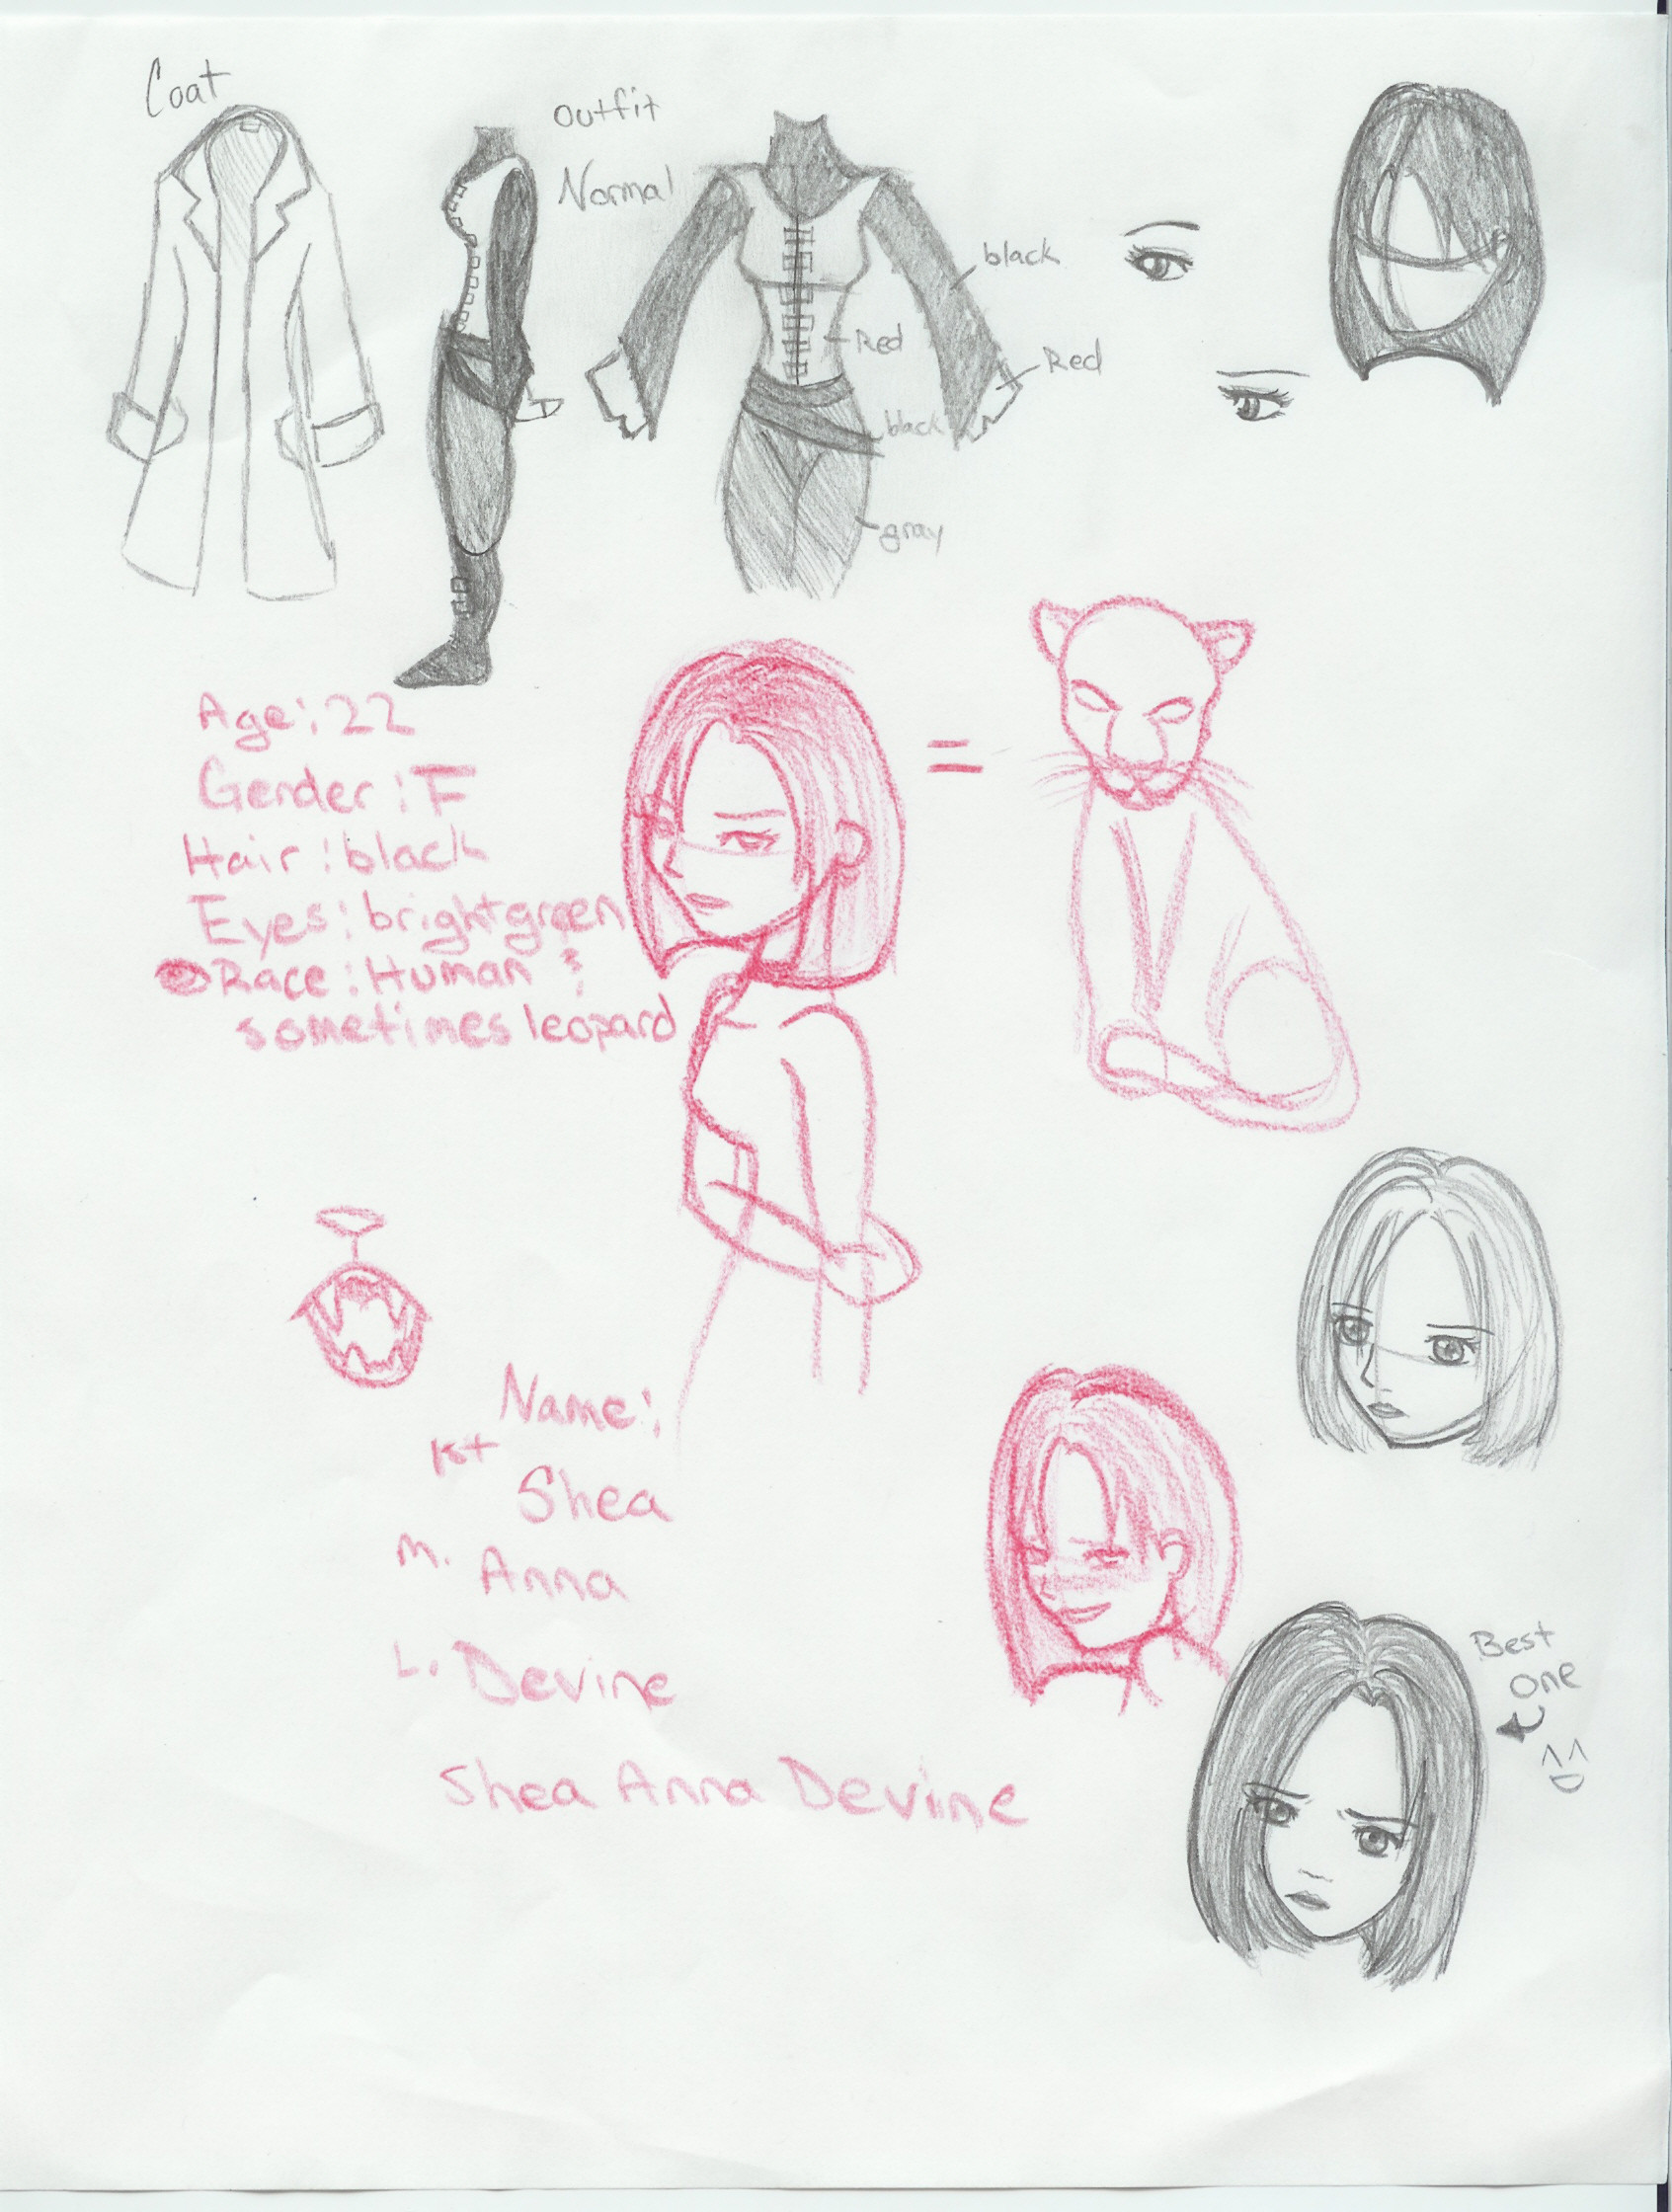 Coat
outfit
Normal
black
Red
Red
black
gray
=
Age: 22
Gender: F
Hair: black
Eyes: bright green
Race: Human &
sometimes leopard
Name:
1st
Shea
M. Anna
L. Devine
Shea Anna Devine
Best
one